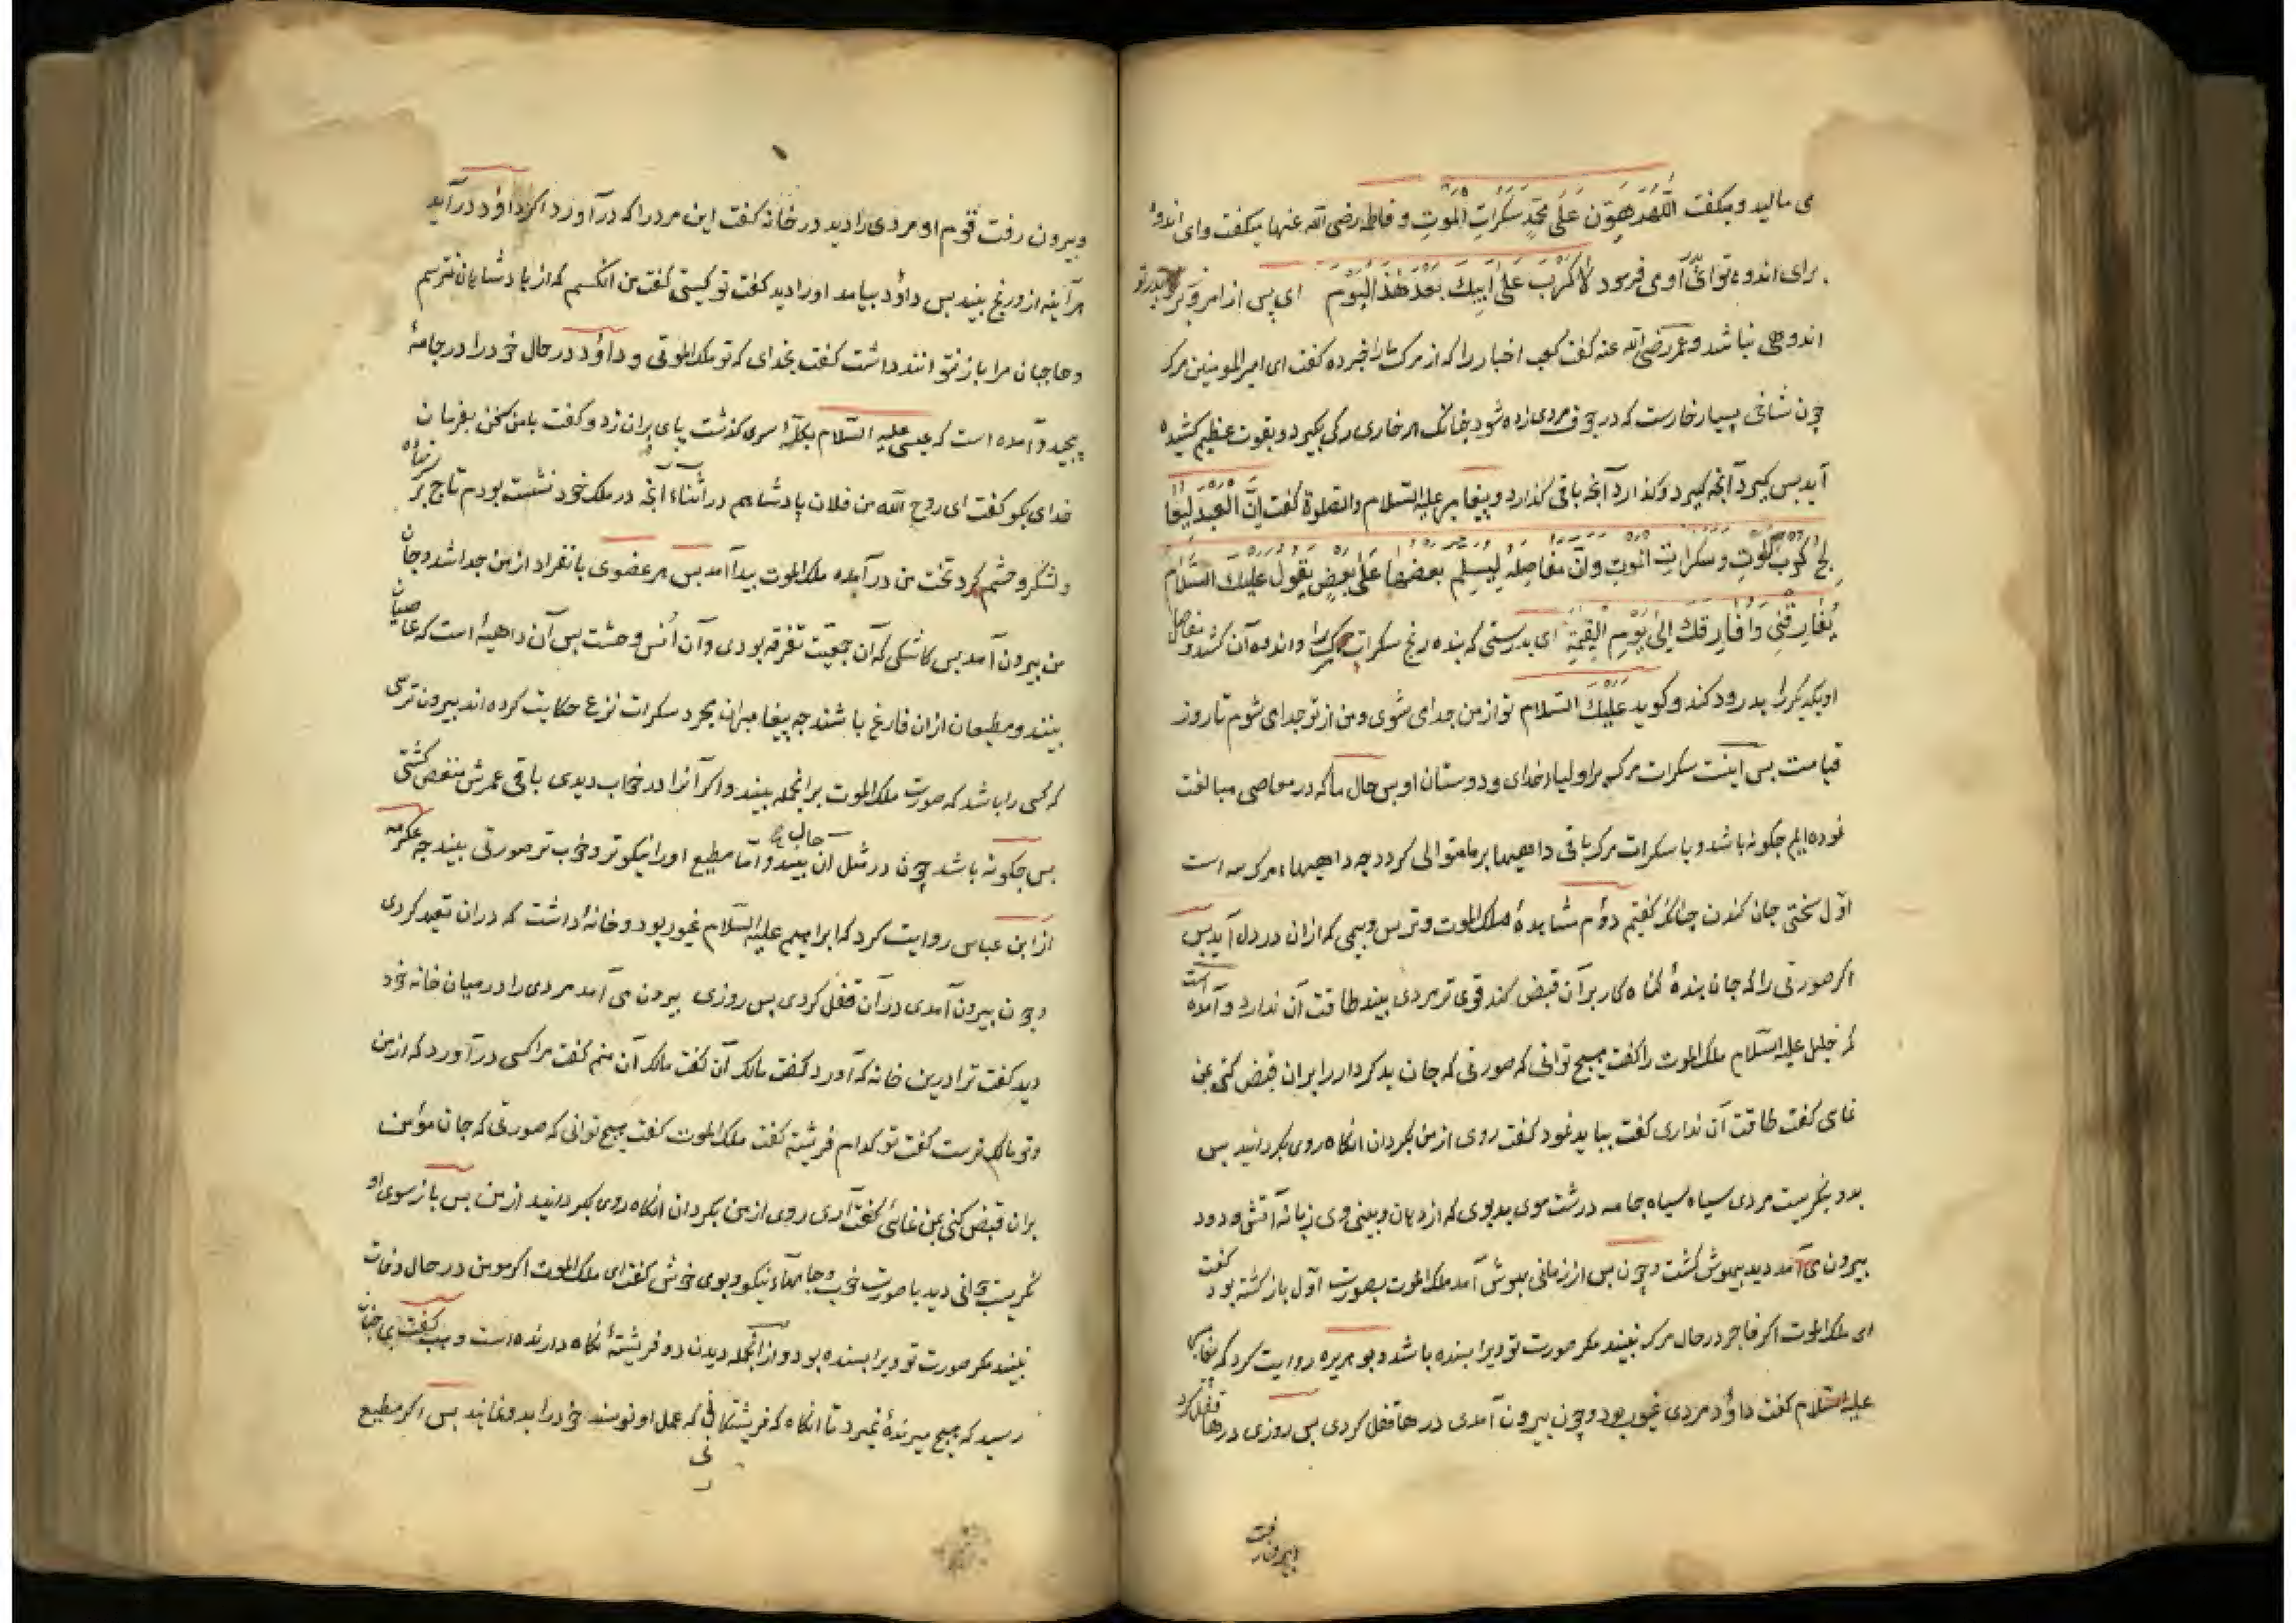 می مالید و میکفت اللّهُمَّ هَوِّن عَلَی مُحَمَّدٍ سَکَرَاتِ المَوتِ و فاطمه رضی الله عنها میکفت وای اندوهٔ
برای اندوه تو ای پدر او می فرمود لَا کَرْبَ عَلَی اَبِیكَ بَعْدَ هٰذَا الیَوْمِ ای پس از امروز بر پدر تو
اندوهی نباشد و عمر رضی الله عنه کفت کعب اخبار را که از مرک ما را خبر ده کفت ای امیر المومنین مرک
چون شاخی بسیار خارست که در جوف مردی زاده شود چنانک هر خاری رکی بکیرد و بقوت عظیم کشیده
آید بس کیرد آنچه کیرد و کذارد آنچه باقی کذارد و پیغامبر علیه السلام والصلوة کفت اِنَّ العَبدَ لیعا
لج کربَ الموتِ و سَکَرَاتِ الموتِ و اِنَّ مَفَاصِلَهُ لَیُسَلِّم بعضُها عَلَی بعضٍ یقول علیك السَّلَام
تُفَارِقُنِی وَ اُفَارِقُكَ اِلیٰ یَوْمِ القِیٰمَةِ ای بدرستی که بنده رنج سکرات مرک را و اندوه آن کشد و مفاصل
او یکدیکر را بدرود کند و کوید عَلَیْكَ السلام تو از من جدا می شوی و من از تو جدا می شوم تا روز
قیامت بس اینست سکرات مرک بر اولیاء خدای و دوستان او بس حال ما که در معاصی مبالغت
نموده ایم جکونه باشد و با سکرات مرک باقی داهیها بر ما متوالی کردد چه داهیهاء مرک سه است
اوّل سختی جان کندن چنانک کفتیم دوم مشاهدهٔ ملک الموت و ترس و بیمی که ازان در دل آید بس
اکر صورتی را که جان بندهٔ کناه کار بر آن قبض کند قوی تر مردی بیند طاقت آن ندارد و آمده است
که خلیل علیه السلام ملک الموت را کفت هیچ توانی که صورتی که جان بد کردار را بران قبض کنی بمن
نمای کفت طاقت آن نداری کفت بباید نمود کفت روی از من بکردان انکاه روی بکردانید بس
بدو بنکریست مردی سیاه سیاه جامه درشت موی بدبوی که از دهان و بینی وی زبانهٔ آتش و دود
بیرون می آمد دید بیهوش کشت و چون بس از زمانی بهوش آمد ملک الموت بصورت اوّل باز کشته بود کفت
ای ملک الموت اکر فاجر در حال مرک نبیند مکر صورت تو ویرا بسنده باشد و بو هریره روایت کرد که پیغامبر
علیه السلام کفت داؤد مردی غیور بود و چون بیرون آمدی درها قفل کردی بس روزی درها قفل کرد
و بیرون رفت
و بیرون رفت قوم او مردی را دید در خانه کفت این مرد را که در آورد اکر داؤد در آید
هر آینه ازو رنج بیند بس داؤد بیامد او را دید کفت تو کیستی کفت من آنکسم که از بادشاهان نترسم
و حاجبان مرا باز نتوانند داشت کفت بخدای که تو ملک الموتی و داؤد در حال خود را در جامهٔ
پیچید و آمده است که عیسی علیه السلام بکلّهٔ سری کذشت پای بران زد و کفت با من سخن بفرمان
خدای بکو کفت ای روح الله من فلان پادشاهم در اثناء آنچه در ملک خود نشسته بودم تاج بر سر نهاده
و لشکر و حشم کرد تخت من در آمده ملک الموت پیدا آمد بس هر عضوی بانفراد از من جدا شد و جان
من بیرون آمد بس کاشکی که آن جمعیت تفرقه بودی و آن اُنس وحشت بس آن داهیهٔ است که عاصیان
بینند و مطیعان ازان فارغ باشند چه پیغامبران مجرد سکرات نزع حکایت کرده اند بیرون ترسی
که کسی را باشد که صورت ملک الموت بر آنجمله بیند و اکر آنرا در خواب دیدی باقی عمرش منغص کشتی
بس جکونه باشد چون در مثل آن حال بیند و امّا مطیع او را نیکوتر و خوب تر صورتی بیند چه عکرمه
از ابن عباس روایت کرد که ابراهیم علیه السلام غیور بود و خانهٔ داشت که دران تعبد کردی
و چون بیرون آمدی در آن قفل کردی بس روزی بیرون می آمد مردی را در میان خانه خود
دید کفت ترا درین خانه که آورد کفت مالک آن کفت مالک آن منم کفت مرا کسی در آورد که از من
و تو مالک ترست کفت تو کدام فرشتهٔ کفت ملک الموت کفت هیچ توانی که صورتی که جان مؤمن
بران قبض کنی بمن نمائی کفت آری روی از من بکردان انکاه روی بکردانید از من بس باز سوی او
نکریست جوانی دید با صورت خوب و جامهاء نیکو و بوی خوش کفت ای ملک الموت اکر مومن در حال وفات
نبیند مکر صورت تو ویرا بسنده بود و از آنجمله دیدن دو فریشتهٔ نکاه دارنده است وهب کفت بما چنان
رسید که هیچ میرندهٔ نمیرد تا آنکاه که فریشتکانی که عمل او نویسند خود را بدو نمایند بس اکر مطیع